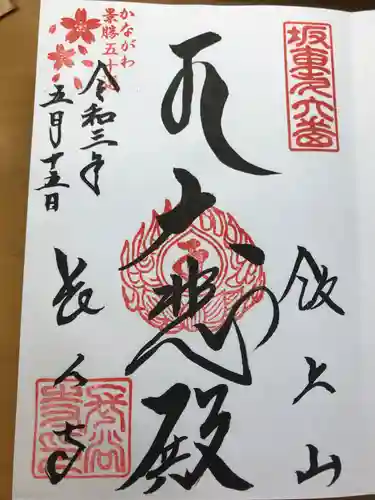 坂東第六番
飯上山
大悲殿
かながわ
景勝五十選
令和三年
五月十五日
長谷寺
長谷
寺印